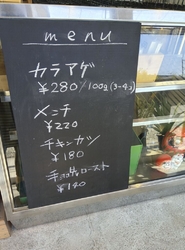 menu
カラアゲ
¥280/100g(3〜4コ)
メンチ
¥220
チキンカツ
¥180
手羽先ロースト
¥140